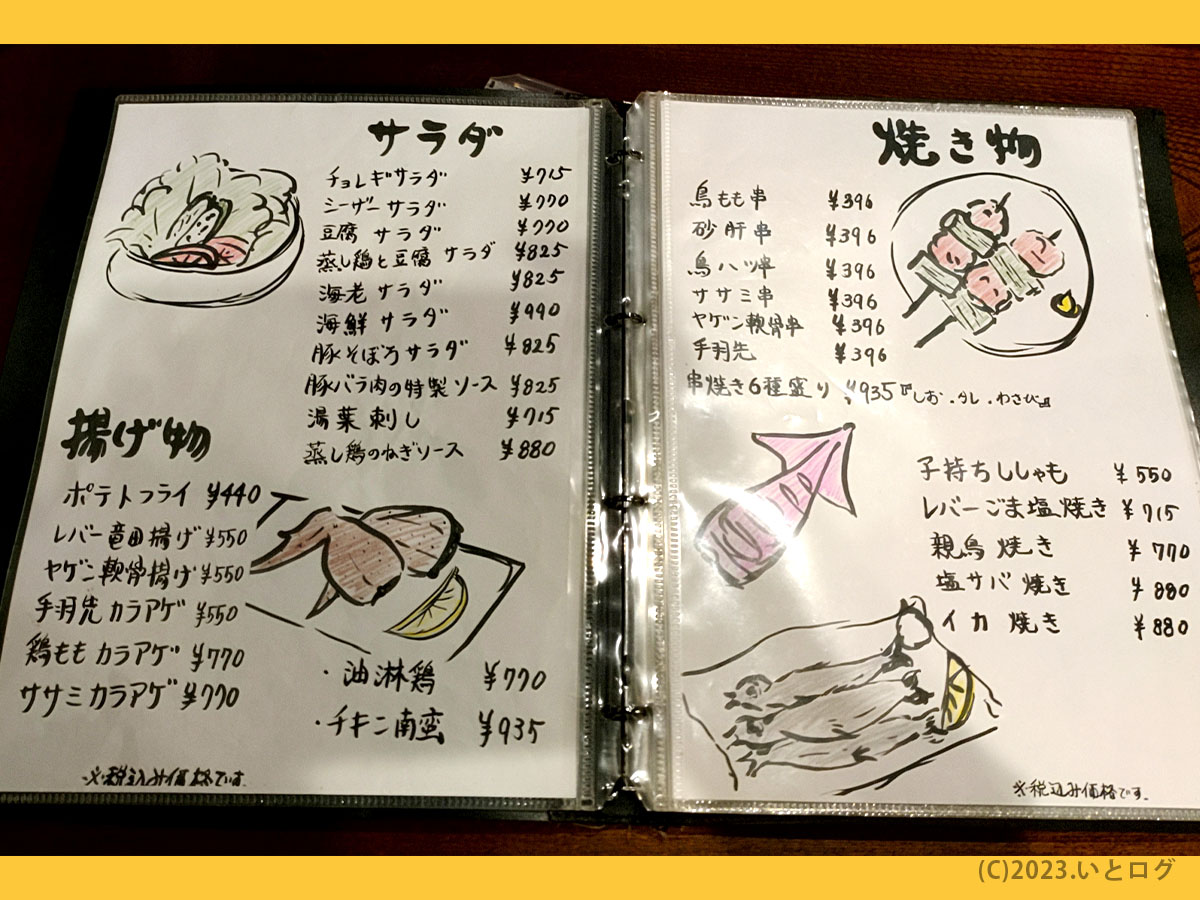 サラダ
チョレギサラダ ¥715
シーザーサラダ ¥770
豆腐サラダ ¥770
蒸し鶏と豆腐サラダ ¥825
海老サラダ ¥825
海鮮サラダ ¥990
豚そぼろサラダ ¥825
豚バラ肉の特製ソース ¥825
湯葉刺し ¥715
蒸し鶏のねぎソース ¥880
揚げ物
ポテトフライ ¥440
レバー竜田揚げ ¥550
ヤゲン軟骨揚げ ¥550
手羽先カラアゲ ¥550
鶏ももカラアゲ ¥770
ササミカラアゲ ¥770
・油淋鶏 ¥770
・チキン南蛮 ¥935
※税込み価格です。
焼き物
鳥もも串 ¥396
砂肝串 ¥396
鳥ハツ串 ¥396
ササミ串 ¥396
ヤゲン軟骨串 ¥396
手羽先 ¥396
串焼き6種盛り ¥935『しお・タレ・わさび』
子持ちししゃも ¥550
レバーごま塩焼き ¥715
親鳥焼き ¥770
塩サバ焼き ¥880
イカ焼き ¥880
※税込み価格です。
(C)2023.いとログ